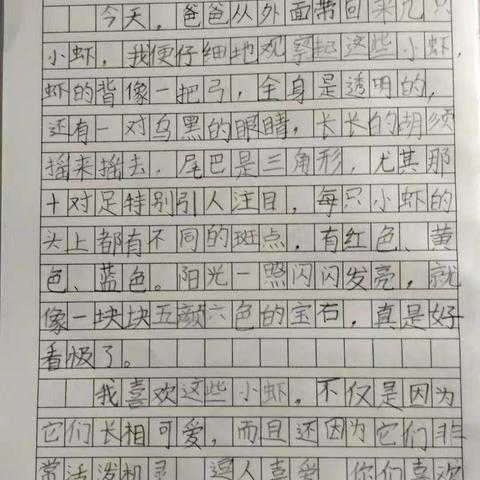 今天，爸爸从外面带回来几只
小虾，我便仔细地观察起这些小虾，
虾的背像一把弓，全身是透明的，
还有一对乌黑的眼睛，长长的胡须
摇来摇去，尾巴是三角形，尤其那
十对足特别引人注目，每只小虾的
头上都有不同的斑点，有红色、黄
色、蓝色。阳光一照闪闪发亮，就
像一块块五颜六色的宝石，真是好
看极了。
我喜欢这些小虾，不仅是因为
它们长相可爱，而且还因为它们非
常活泼机灵，逗人喜爱，你们喜欢